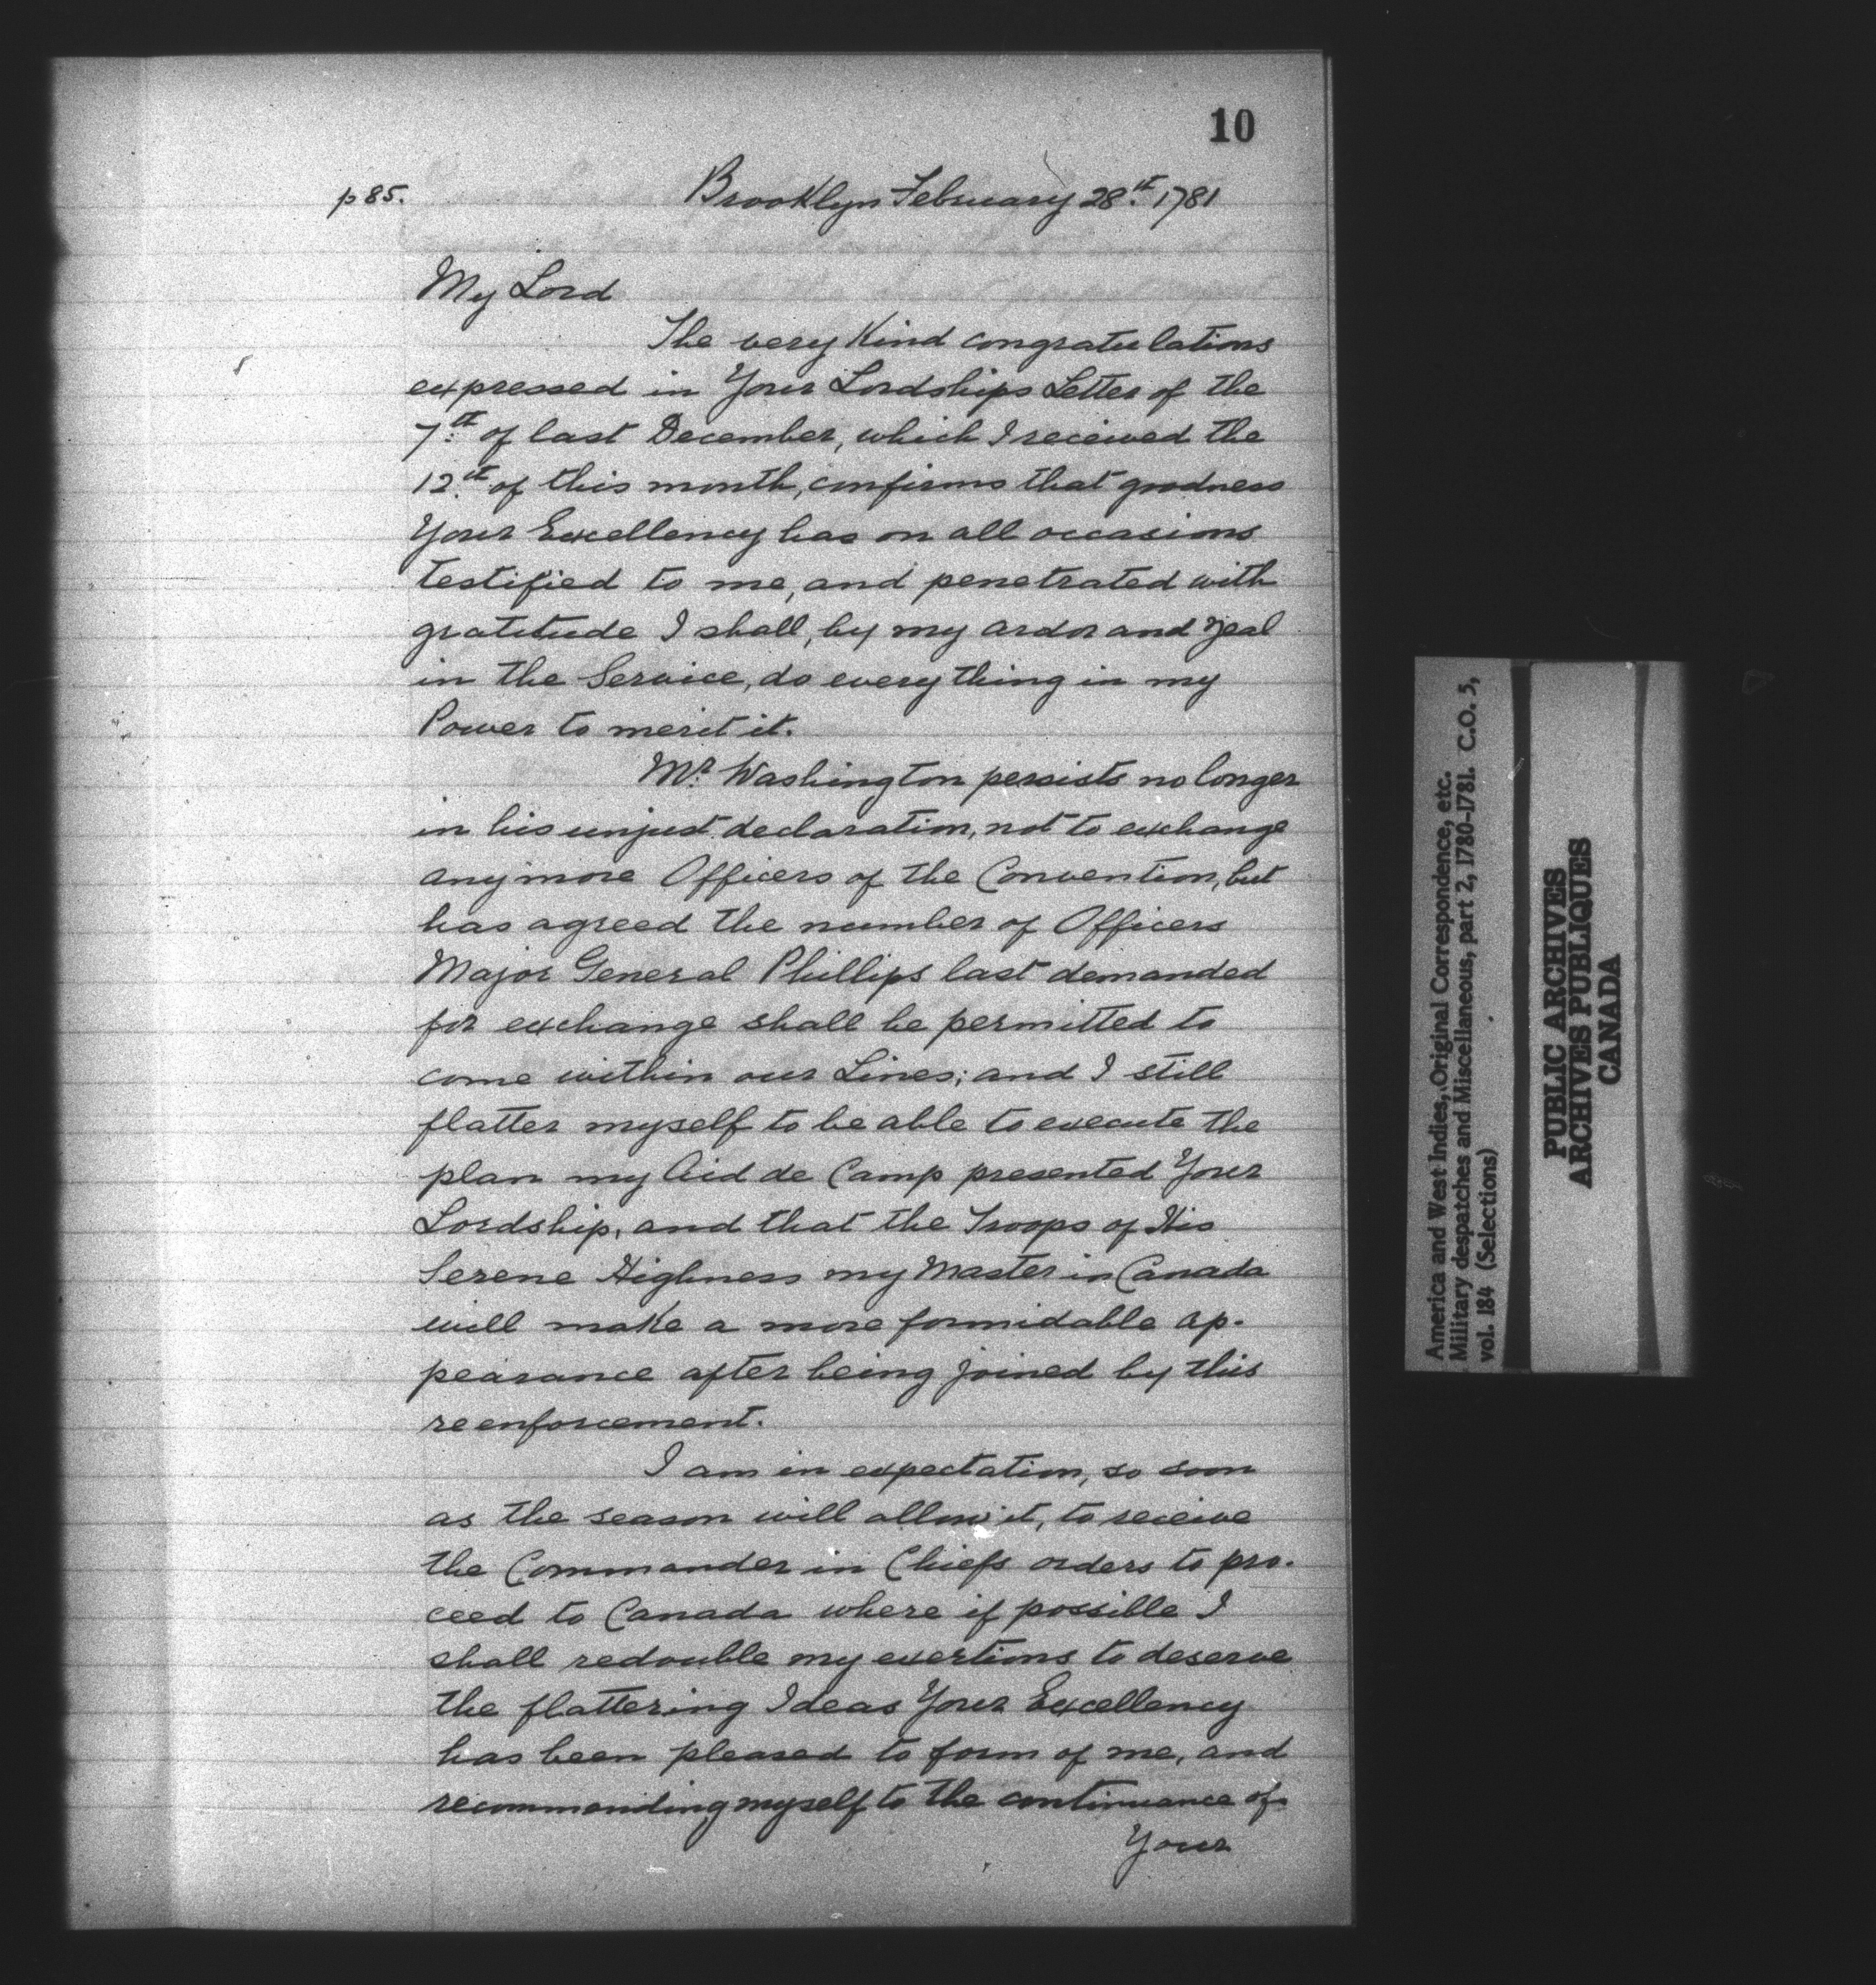 10
p 85. Brooklyn February 28.th 1781
My Lord
The very Kind congratulations
expressed in Your Lordships Letter of the
7.th of last December, which I received the
12.th of this month, confirms that goodness
Your Excellency has on all occasions
testified to me, and penetrated with
gratitude I shall, by my ardor and zeal
in the Service, do every thing in my
Power to merit it.
Mr. Washington persists no longer
in his unjust declaration, not to exchange
any more Officers of the Convention, but
has agreed the number of Officers
Major General Phillips last demanded
for exchange shall be permitted to
come within our Lines; and I still
flatter myself to be able to execute the
plan my Aid de Camp presented Your
Lordship, and that the Troops of His
Serene Highness my Master in Canada
will make a more formidable ap-
pearance after being joined by this
reenforcement.
I am in expectation, so soon
as the season will allow it, to receive
the Commander in Chiefs orders to pro-
ceed to Canada where if possible I
shall redouble my exertions to deserve
the flattering Ideas Your Excellency
has been pleased to form of me, and
recommending myself to the continuance of
Your
America and West Indies, Original Correspondence, etc.
Military despatches and Miscellaneous, part 2, 1780-1781. C.O. 5,
vol. 184 (Selections)
PUBLIC ARCHIVES
ARCHIVES PUBLIQUES
CANADA